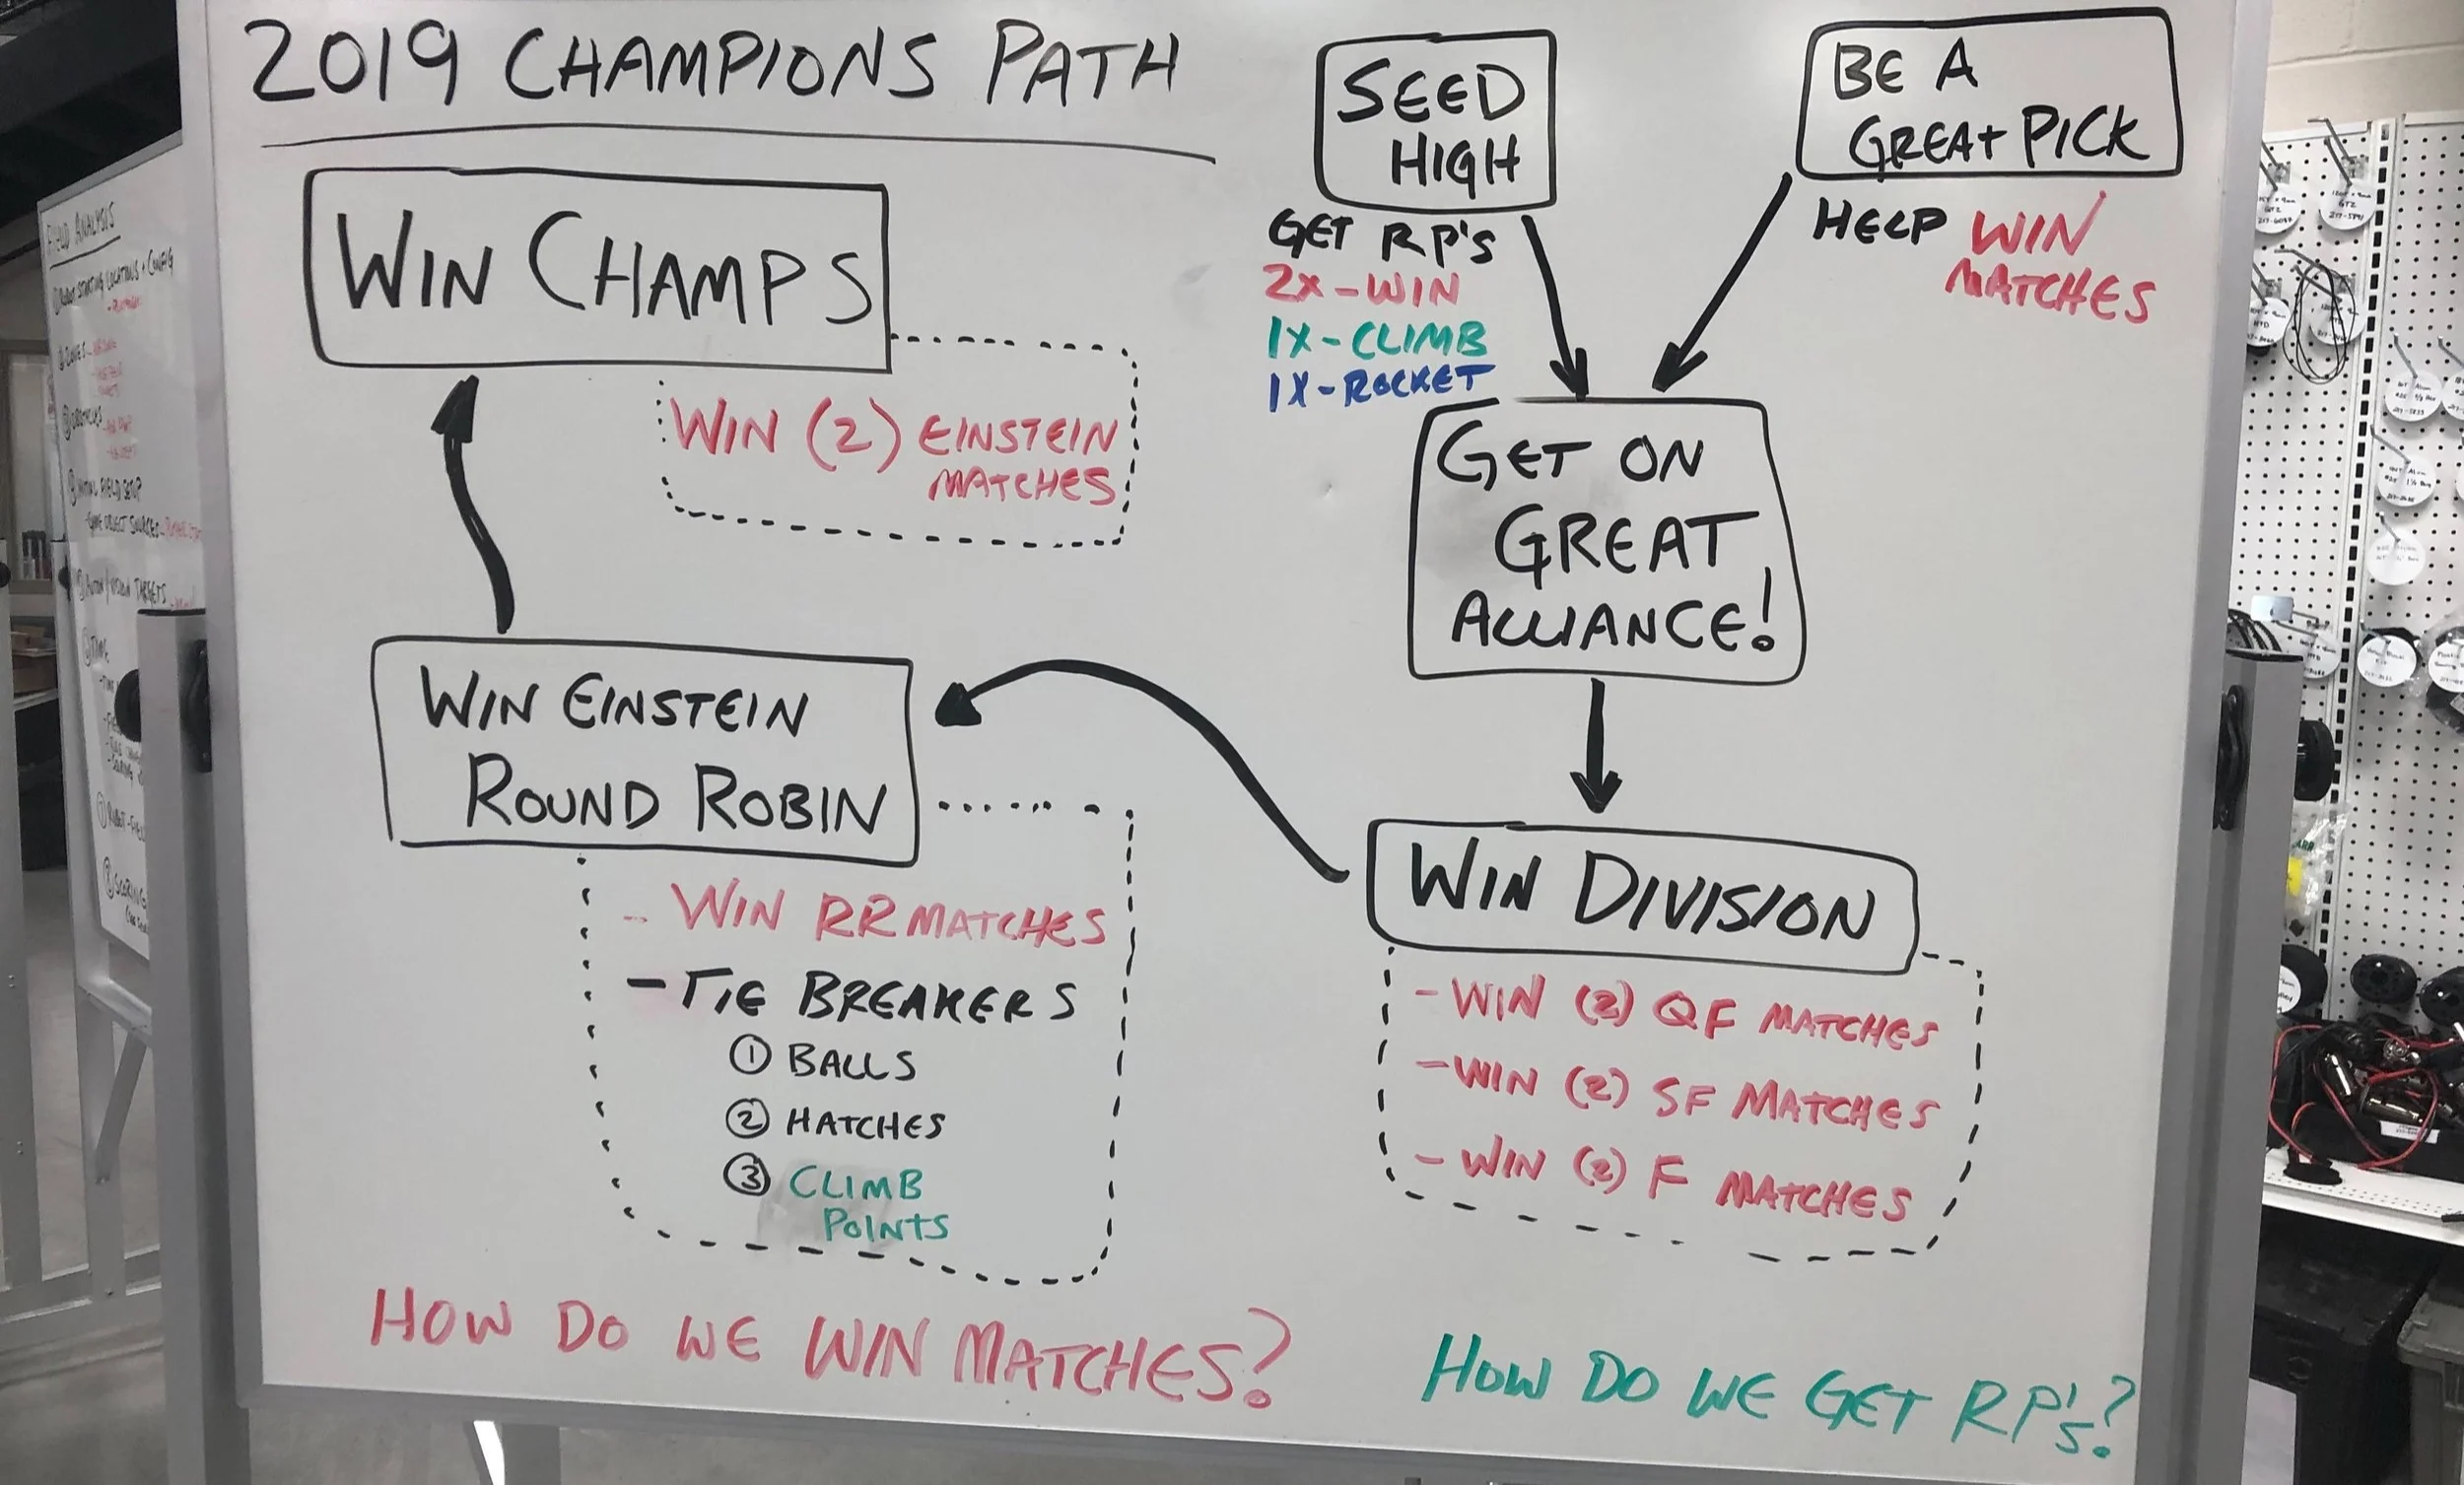 2019 CHAMPIONS PATH
SEED
HIGH
GET RP'S
2X-WIN
1X-CLIMB
1X-ROCKET
BE A
GREAT PICK
HELP WIN
MATCHES
GET ON
GREAT
ALLIANCE!
WIN DIVISION
- WIN (2) QF MATCHES
- WIN (2) SF MATCHES
- WIN (2) F MATCHES
WIN EINSTEIN
ROUND ROBIN
- WIN RR MATCHES
- TIE BREAKERS
① BALLS
② HATCHES
③ CLIMB
POINTS
WIN CHAMPS
WIN (2) EINSTEIN
MATCHES
HOW DO WE WIN MATCHES?
HOW DO WE GET RP'S?
FIELD ANALYSIS